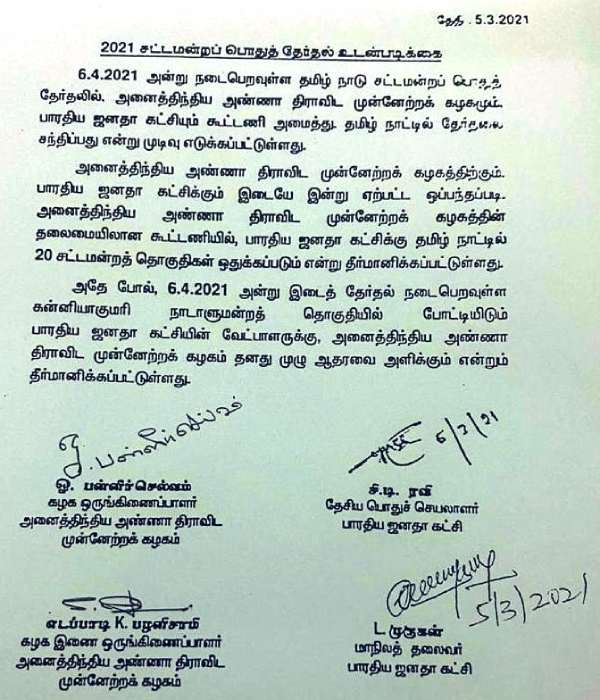 தேதி. 5.3.2021
2021 சட்டமன்றப் பொதுத் தேர்தல் உடன்படிக்கை
6.4.2021 அன்று நடைபெறவுள்ள தமிழ் நாடு சட்டமன்றப் பொதுத்
தேர்தலில், அனைத்திந்திய அண்ணா திராவிட முன்னேற்றக் கழகமும்,
பாரதிய ஜனதா கட்சியும் கூட்டணி அமைத்து, தமிழ் நாட்டில் தேர்தலை
சந்திப்பது என்று முடிவு எடுக்கப்பட்டுள்ளது.
அனைத்திந்திய அண்ணா திராவிட முன்னேற்றக் கழகத்திற்கும்,
பாரதிய ஜனதா கட்சிக்கும் இடையே இன்று ஏற்பட்ட ஒப்பந்தப்படி,
அனைத்திந்திய அண்ணா திராவிட முன்னேற்றக் கழகத்தின்
தலைமையிலான கூட்டணியில், பாரதிய ஜனதா கட்சிக்கு தமிழ் நாட்டில்
20 சட்டமன்றத் தொகுதிகள் ஒதுக்கப்படும் என்று தீர்மானிக்கப்பட்டுள்ளது.
அதே போல், 6.4.2021 அன்று இடைத் தேர்தல் நடைபெறவுள்ள
கன்னியாகுமரி நாடாளுமன்றத் தொகுதியில் போட்டியிடும்
பாரதிய ஜனதா கட்சியின் வேட்பாளருக்கு, அனைத்திந்திய அண்ணா
திராவிட முன்னேற்றக் கழகம் தனது முழு ஆதரவை அளிக்கும் என்றும்
தீர்மானிக்கப்பட்டுள்ளது.
ஓ. பன்னீர்செல்வம்
ஓ. பன்னீர்செல்வம்
கழக ஒருங்கிணைப்பாளர்
அனைத்திந்திய அண்ணா திராவிட
முன்னேற்றக் கழகம்
5/3/21
சி.டி. ரவி
தேசிய பொதுச் செயலாளர்
பாரதிய ஜனதா கட்சி
எடப்பாடி K. பழனிசாமி
கழக இணை ஒருங்கிணைப்பாளர்
அனைத்திந்திய அண்ணா திராவிட
முன்னேற்றக் கழகம்
5/3/2021
L. முருகன்
மாநிலத் தலைவர்
பாரதிய ஜனதா கட்சி